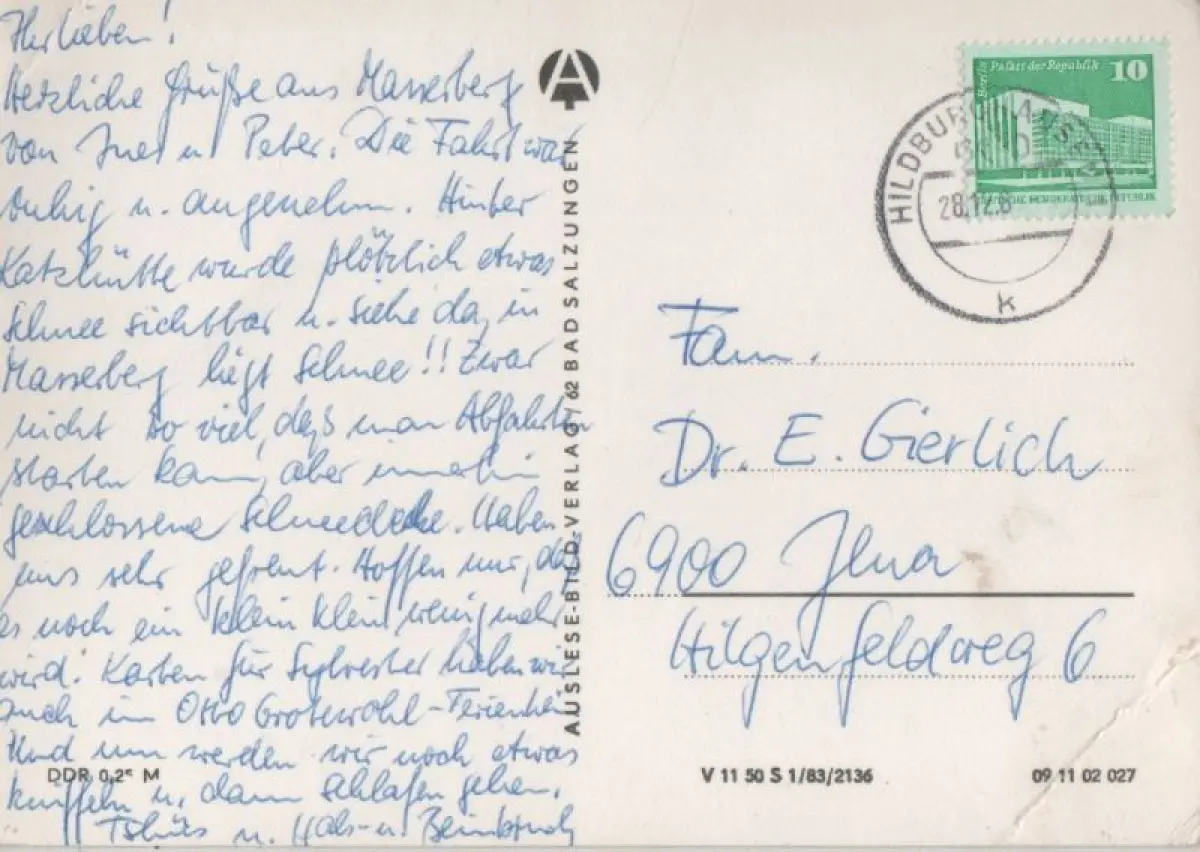 Ihr lieben!
Herzliche Grüße aus Masserberg
von Ines u. Peter. Die Fahrt war
ruhig u. angenehm. Hinter
Katzhütte wurde plötzlich etwas
Schnee sichtbar u. siehe da, in
Masserberg liegt Schnee!! Zwar
nicht so viel, daß man Abfahrten
starten kann, aber immerhin
geschlossene Schneedecke. Haben
uns sehr gefreut. Hoffen nur, daß
es noch ein klein klein wenig mehr
wird. Karten für Sylvester haben wir
auch im Otto Grotewohl-Ferienheim
Und nun werden wir noch etwas
kniffeln u. dann schlafen gehen.
Tschüs u. Hals- u. Beinbruch
DDR 0,25 M
AUSLESE-BILD-VERLAG / 62 BAD SALZUNGEN
Berlin Palast der Republik 10
DEUTSCHE DEMOKRATISCHE REPUBLIK
HILDBURGHAUSEN
28.12.8
k
Fam.
Dr. E. Gierlich
6900 Jena
Hilgenfeldweg 6
V 11 50 S 1/83/2136
09 11 02 027